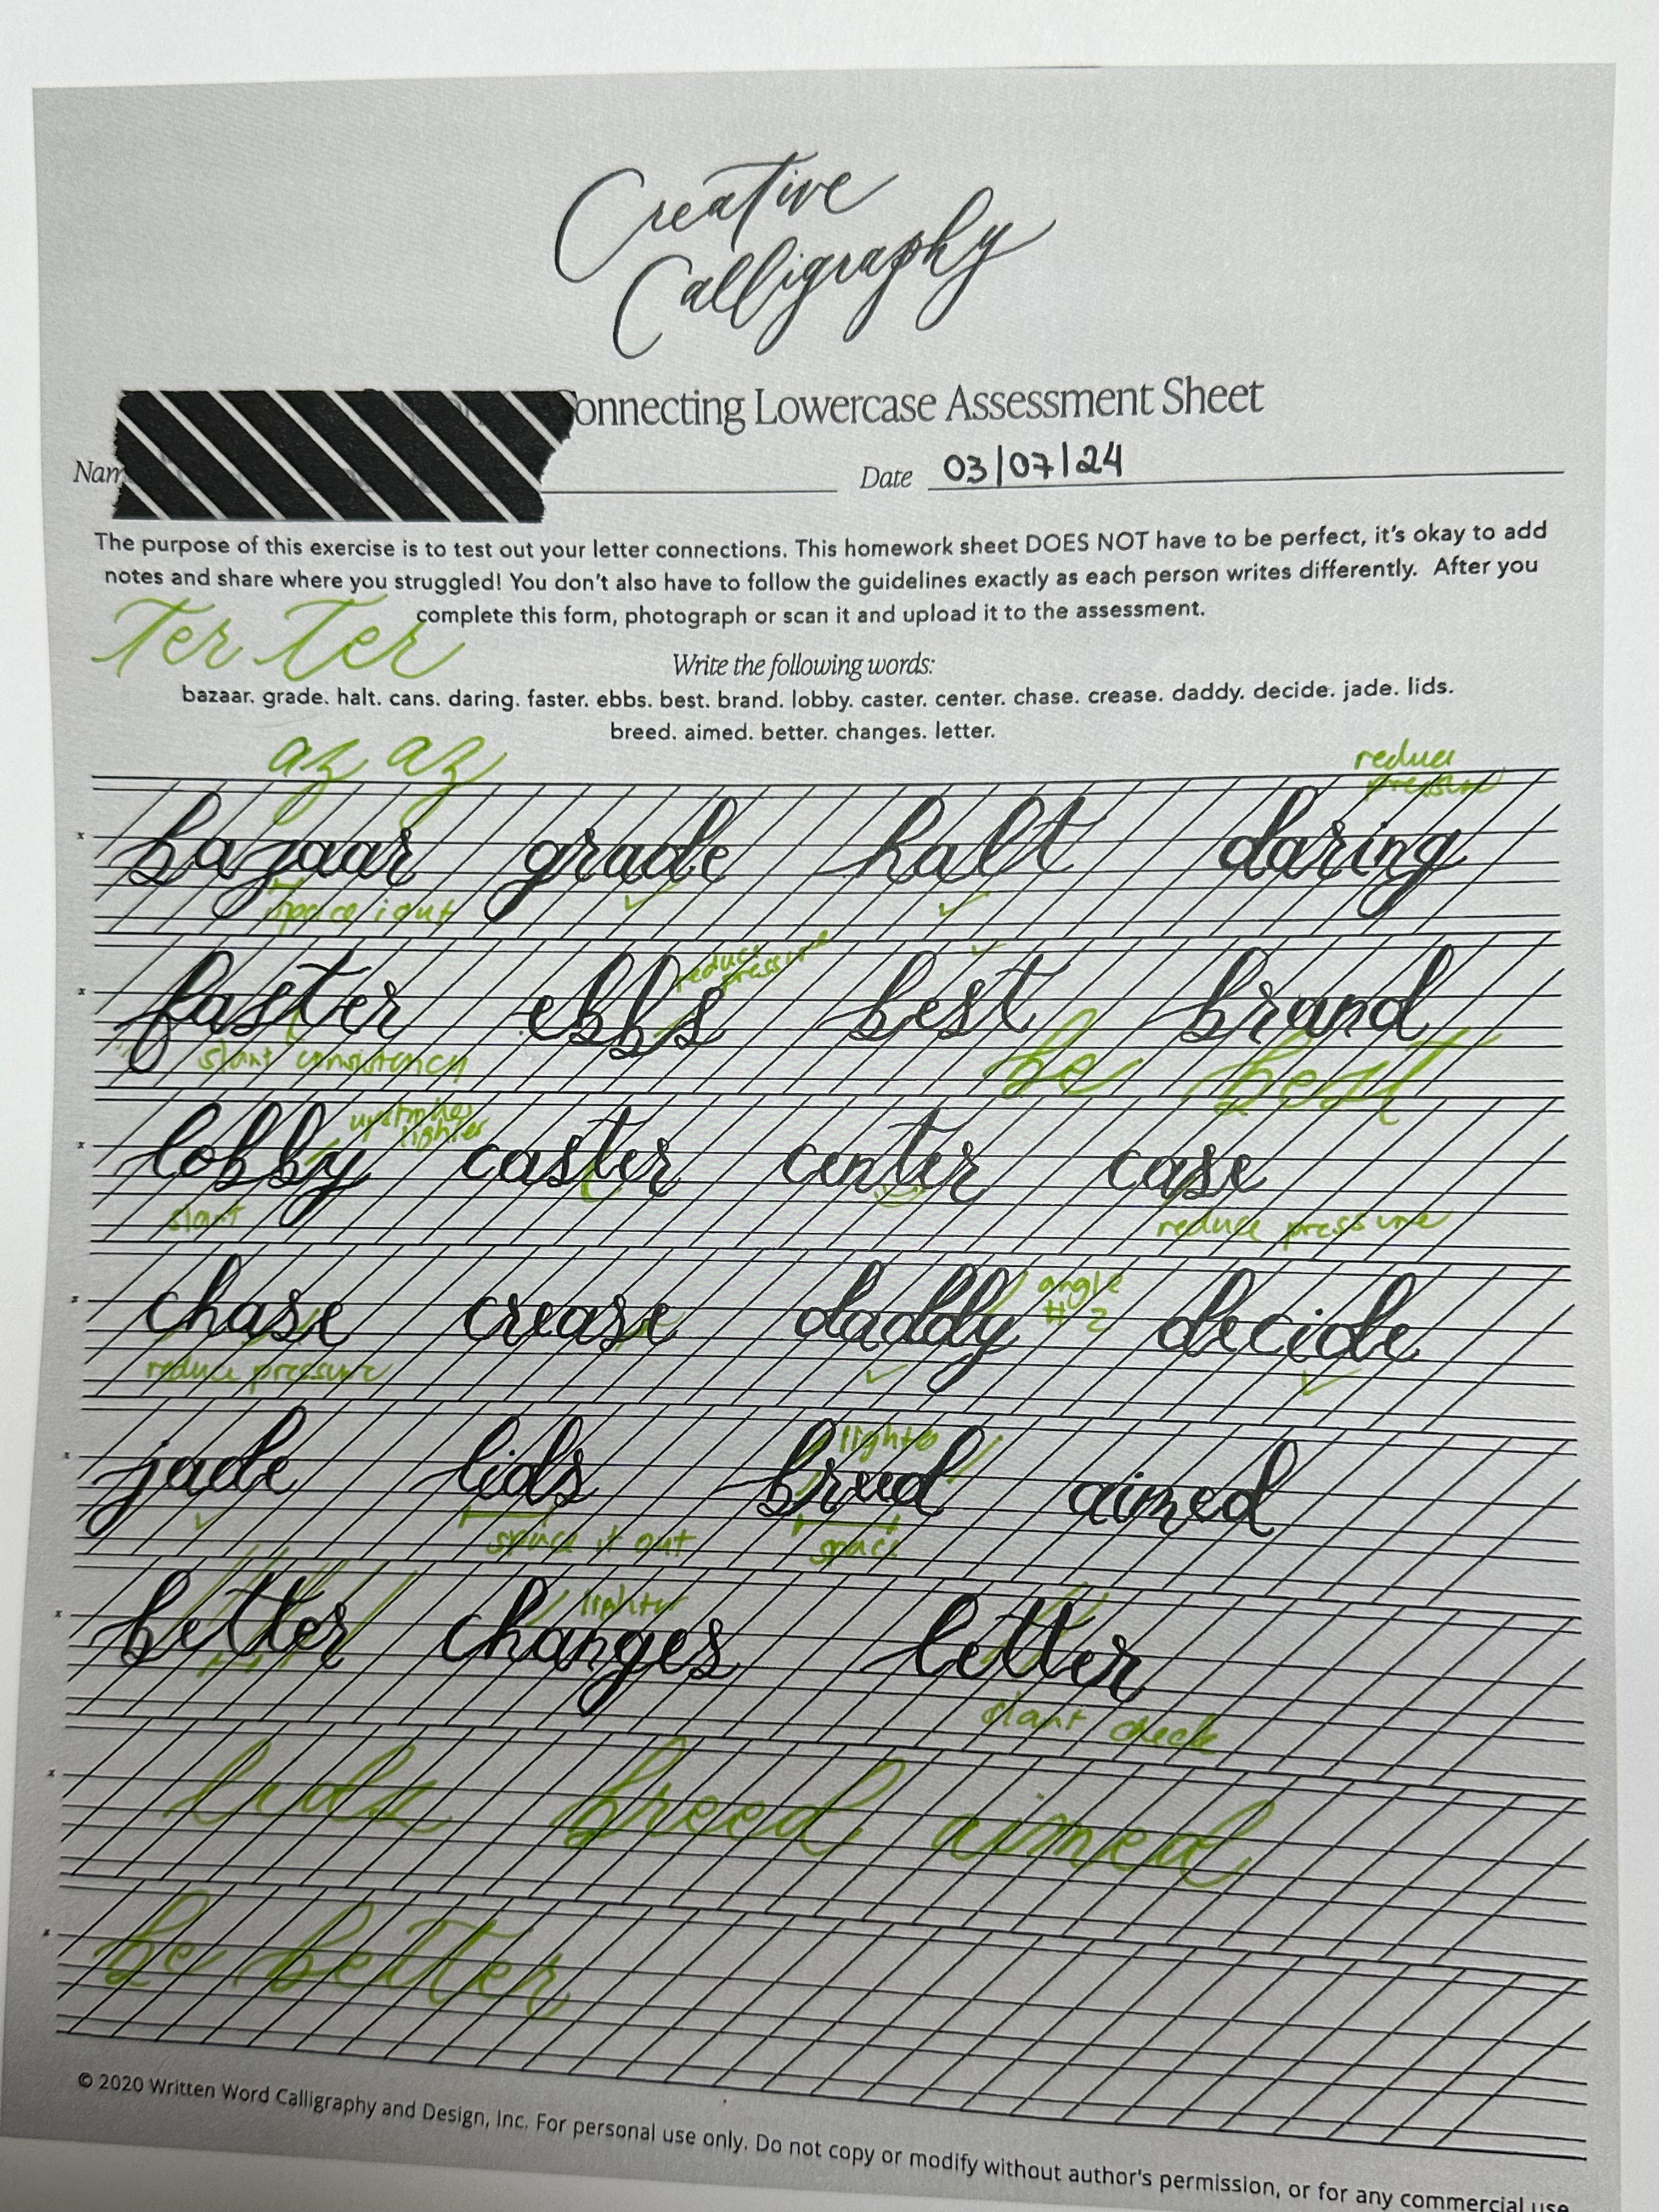 Creative
Calligraphy
onnecting Lowercase Assessment Sheet
Nam
Date 03/07/24
The purpose of this exercise is to test out your letter connections. This homework sheet DOES NOT have to be perfect, it's okay to add
notes and share where you struggled! You don't also have to follow the guidelines exactly as each person writes differently. After you
complete this form, photograph or scan it and upload it to the assessment.
Ter Ter
Write the following words:
bazaar. grade. halt. cans. daring. faster. ebbs. best. brand. lobby. caster. center. chase. crease. daddy. decide. jade. lids.
breed. aimed. better. changes. letter.
az az
reduce
pressure
x bazaar grade halt daring
space out
reduce
pressure
x faster ebbs best brand
slant consistency
be best
upstrokes
lighter
x lobby caster center case
slant
reduce pressure
angle
# 2
x chase crease daddy decide
reduce pressure
lighter
x jade lids breed aimed
space it out space
lighter
x better changes letter
slant check
x lids breed aimed
x be better
© 2020 Written Word Calligraphy and Design, Inc. For personal use only. Do not copy or modify without author's permission, or for any commercial use